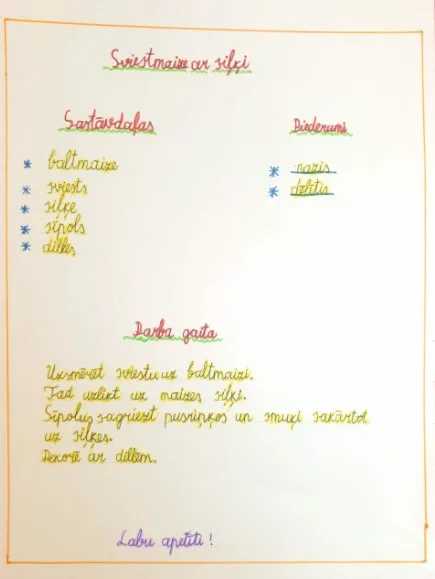 Sviestmaize ar siļķi
Sastāvdaļas
* baltmaize
* sviests
* siļķe
* sīpols
* dilles
Piederumi
* nazis
* dēlītis
Darba gaita
Uzsmērēt sviestu uz baltmaizi.
Tad uzlikt uz maizes siļķi.
Sīpolus sagriezt pusriņķos un smuķi sakārtot
uz siļķes.
Dekorē ar dillēm.
Labu apetīti!